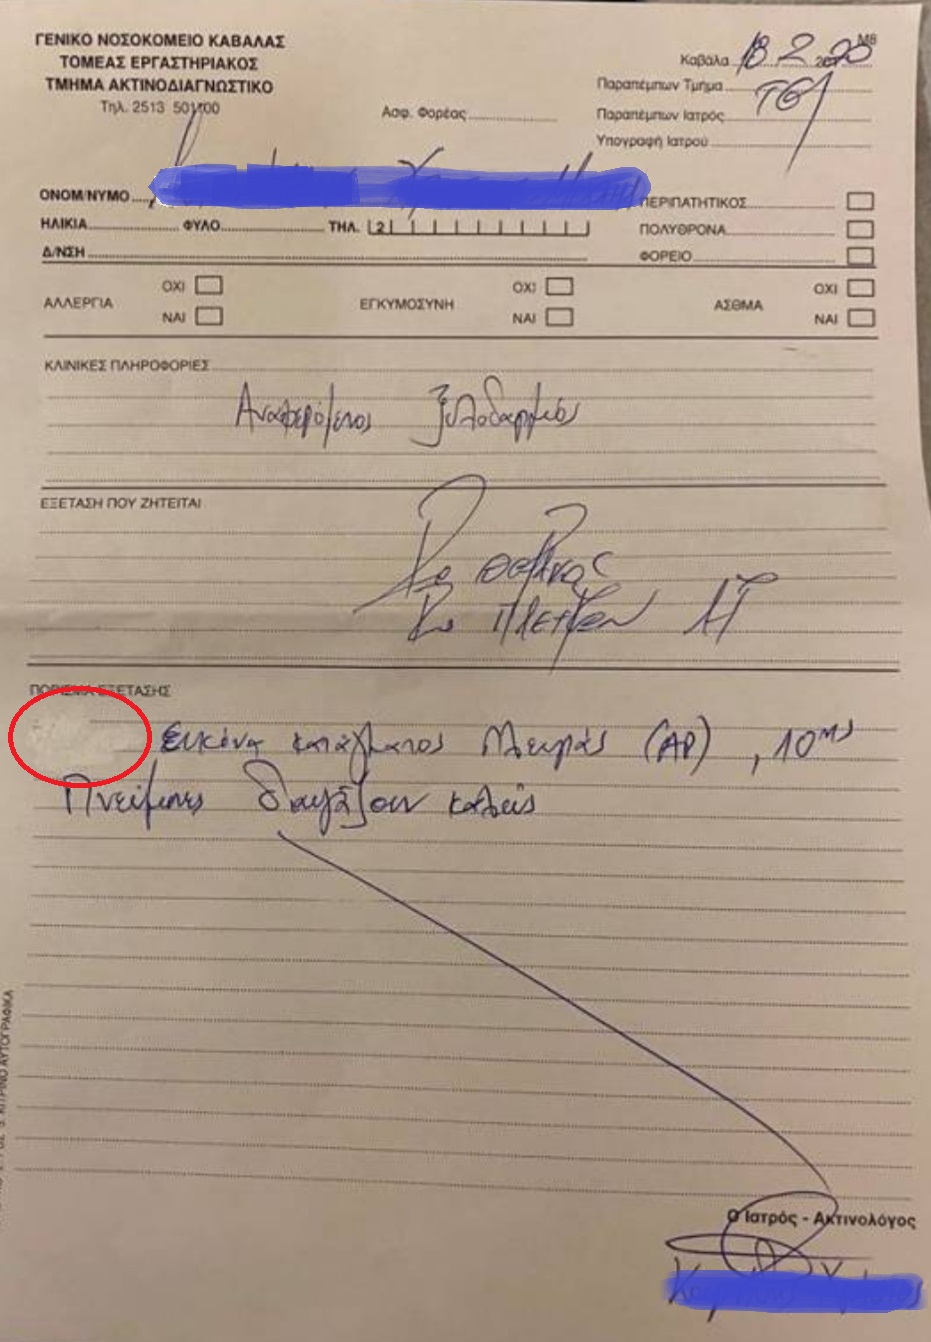 ΓΕΝΙΚΟ ΝΟΣΟΚΟΜΕΙΟ ΚΑΒΑΛΑΣ
ΤΟΜΕΑΣ ΕΡΓΑΣΤΗΡΙΑΚΟΣ
ΤΜΗΜΑ ΑΚΤΙΝΟΔΙΑΓΝΩΣΤΙΚΟ
Τηλ. 2513 501100
Ασφ. Φορέας
Μ8
Καβάλα 18 2 2020
Παραπέμπων Τμήμα ΤΕΠ
Παραπέμπων Ιατρός
Υπογραφή Ιατρού
ΟΝΟΜ/ΝΥΜΟ
ΠΕΡΙΠΑΤΗΤΙΚΟΣ
ΗΛΙΚΙΑ ΦΥΛΟ ΤΗΛ. 2
ΠΟΛΥΘΡΟΝΑ
Δ/ΝΣΗ
ΦΟΡΕΙΟ
ΑΛΛΕΡΓΙΑ ΟΧΙ ΝΑΙ
ΕΓΚΥΜΟΣΥΝΗ ΟΧΙ ΝΑΙ
ΑΣΘΜΑ ΟΧΙ ΝΑΙ
ΚΛΙΝΙΚΕΣ ΠΛΗΡΟΦΟΡΙΕΣ
Αναφερόμενος Ξυλοδαρμός
ΕΞΕΤΑΣΗ ΠΟΥ ΖΗΤΕΙΤΑΙ
Ro θώρακος
Ro πλευρών ΑΡ
ΠΟΡΙΣΜΑ ΕΞΕΤΑΣΗΣ
Εικόνα κατάγματος πλευράς (ΑΡ), 10ης
Πνεύμονες διαυγάζουν καλώς
Ο Ιατρός - Ακτινολόγος